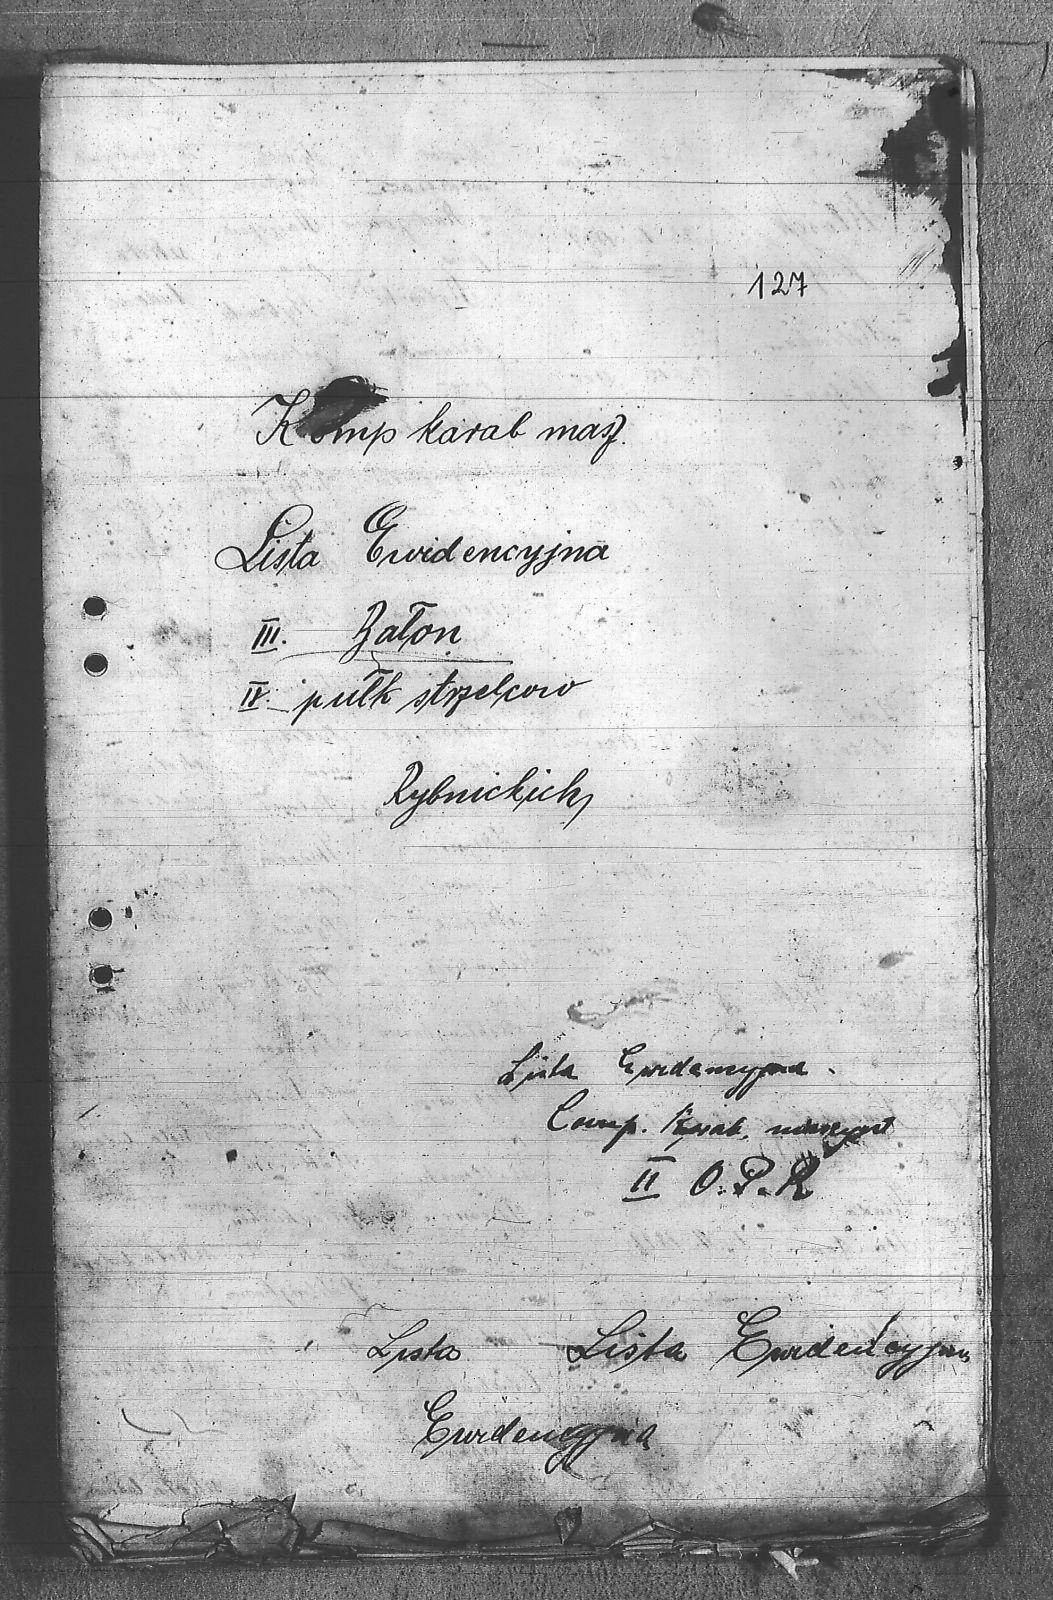 127
Komp karab masz.
Lista Ewidencyjna
III. Bałon
IV. pułk strzelcow
Rybnickich
Lista Ewidencyjna.
Comp. Karab.
II O.P.R
Lista Lista Ewidencyjna
Ewidencyjna